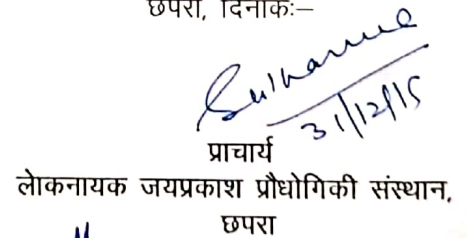 छपरा, दिनांकः–
31/12/15
प्राचार्य
लेाकनायक जयप्रकाश प्रौधोगिकी संस्थान,
छपरा